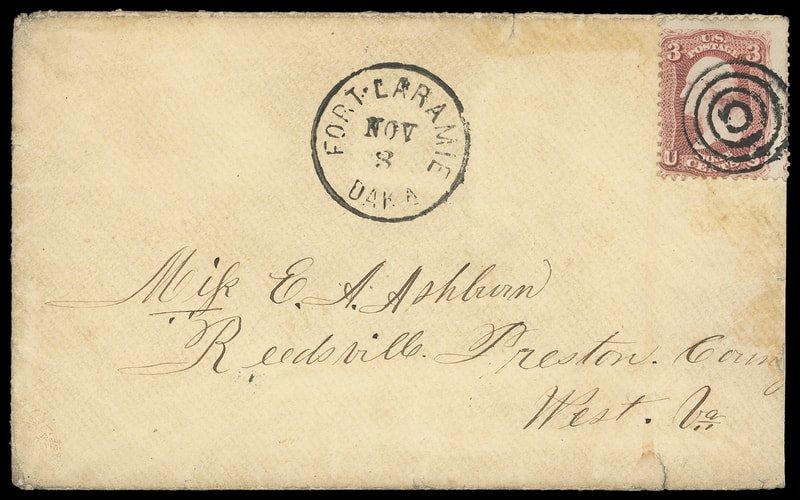 FORT·LARAMIE
NOV
8
DAK·A
3 U.S. 3
POSTAGE
U S
CENTS
Miſs E. A. Ashburn
Reedsville. Preston. Coun
West. Va